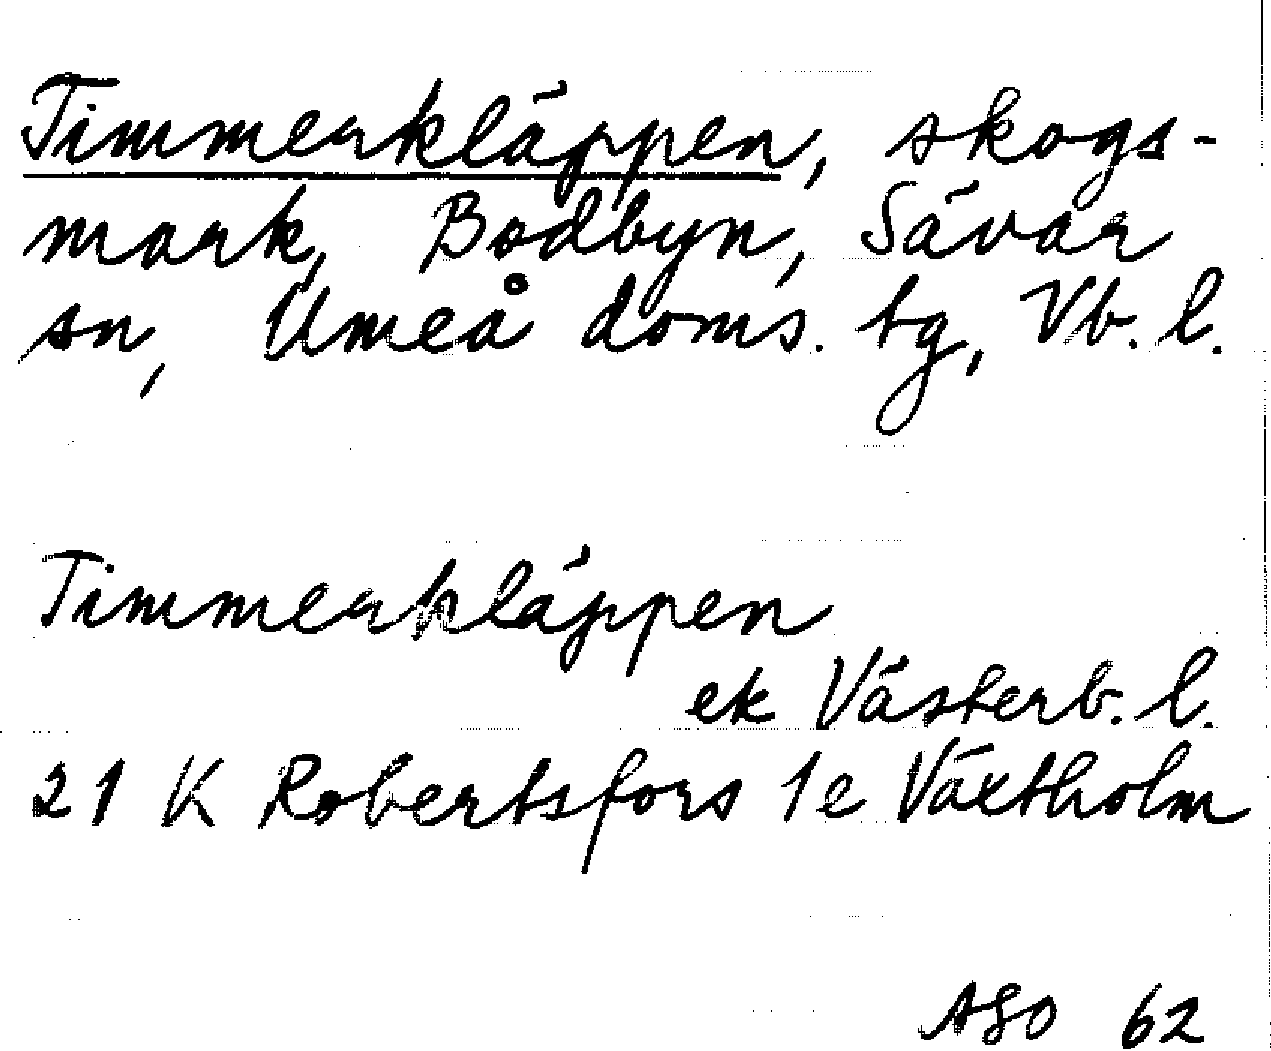 Timmerkläppen, skogs-
mark, Bodbyn, Sävar
sn, Umeå doms. tg, Vb. l.
Timmerkläppen
ek Västerb. l.
21 K Robertsfors 1e Växtholm
ASO 62